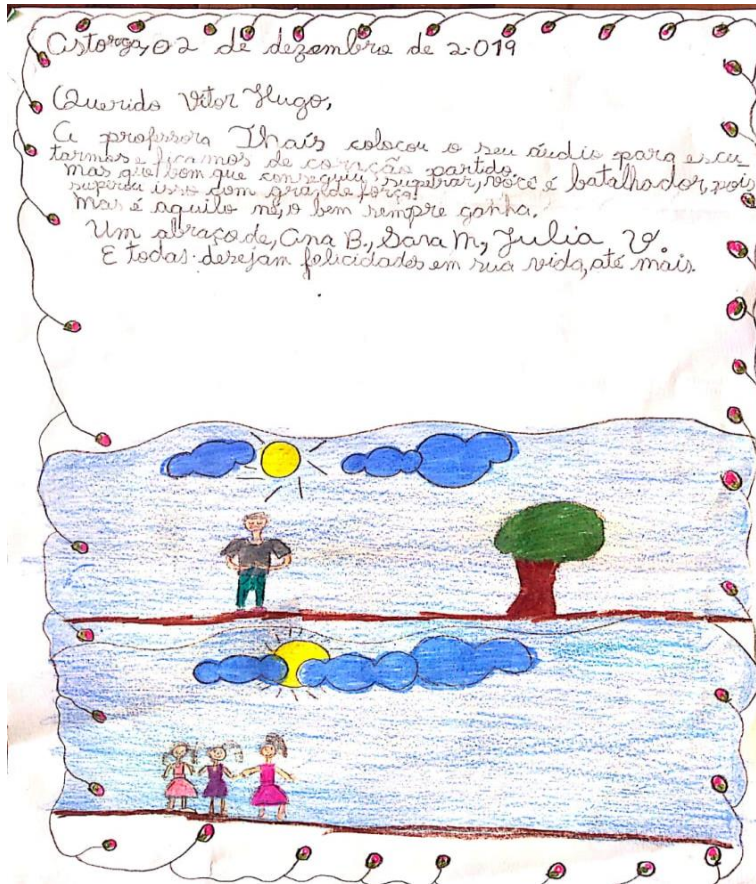 Astorga, 02 de dezembro de 2.019
Querido Vitor Hugo,
A professora Thaís colocou o seu áudio para escu-
tarmos e ficamos de corição partido.
mas que bom que conseguiu superar, você é batalhador, pois
superou isso com grande força!
Mas é aquilo né, o bem sempre ganha.
Um abraço de, Ana B., Sara M., Julia V.
E todas desejam felicidades em sua vida, até mais.